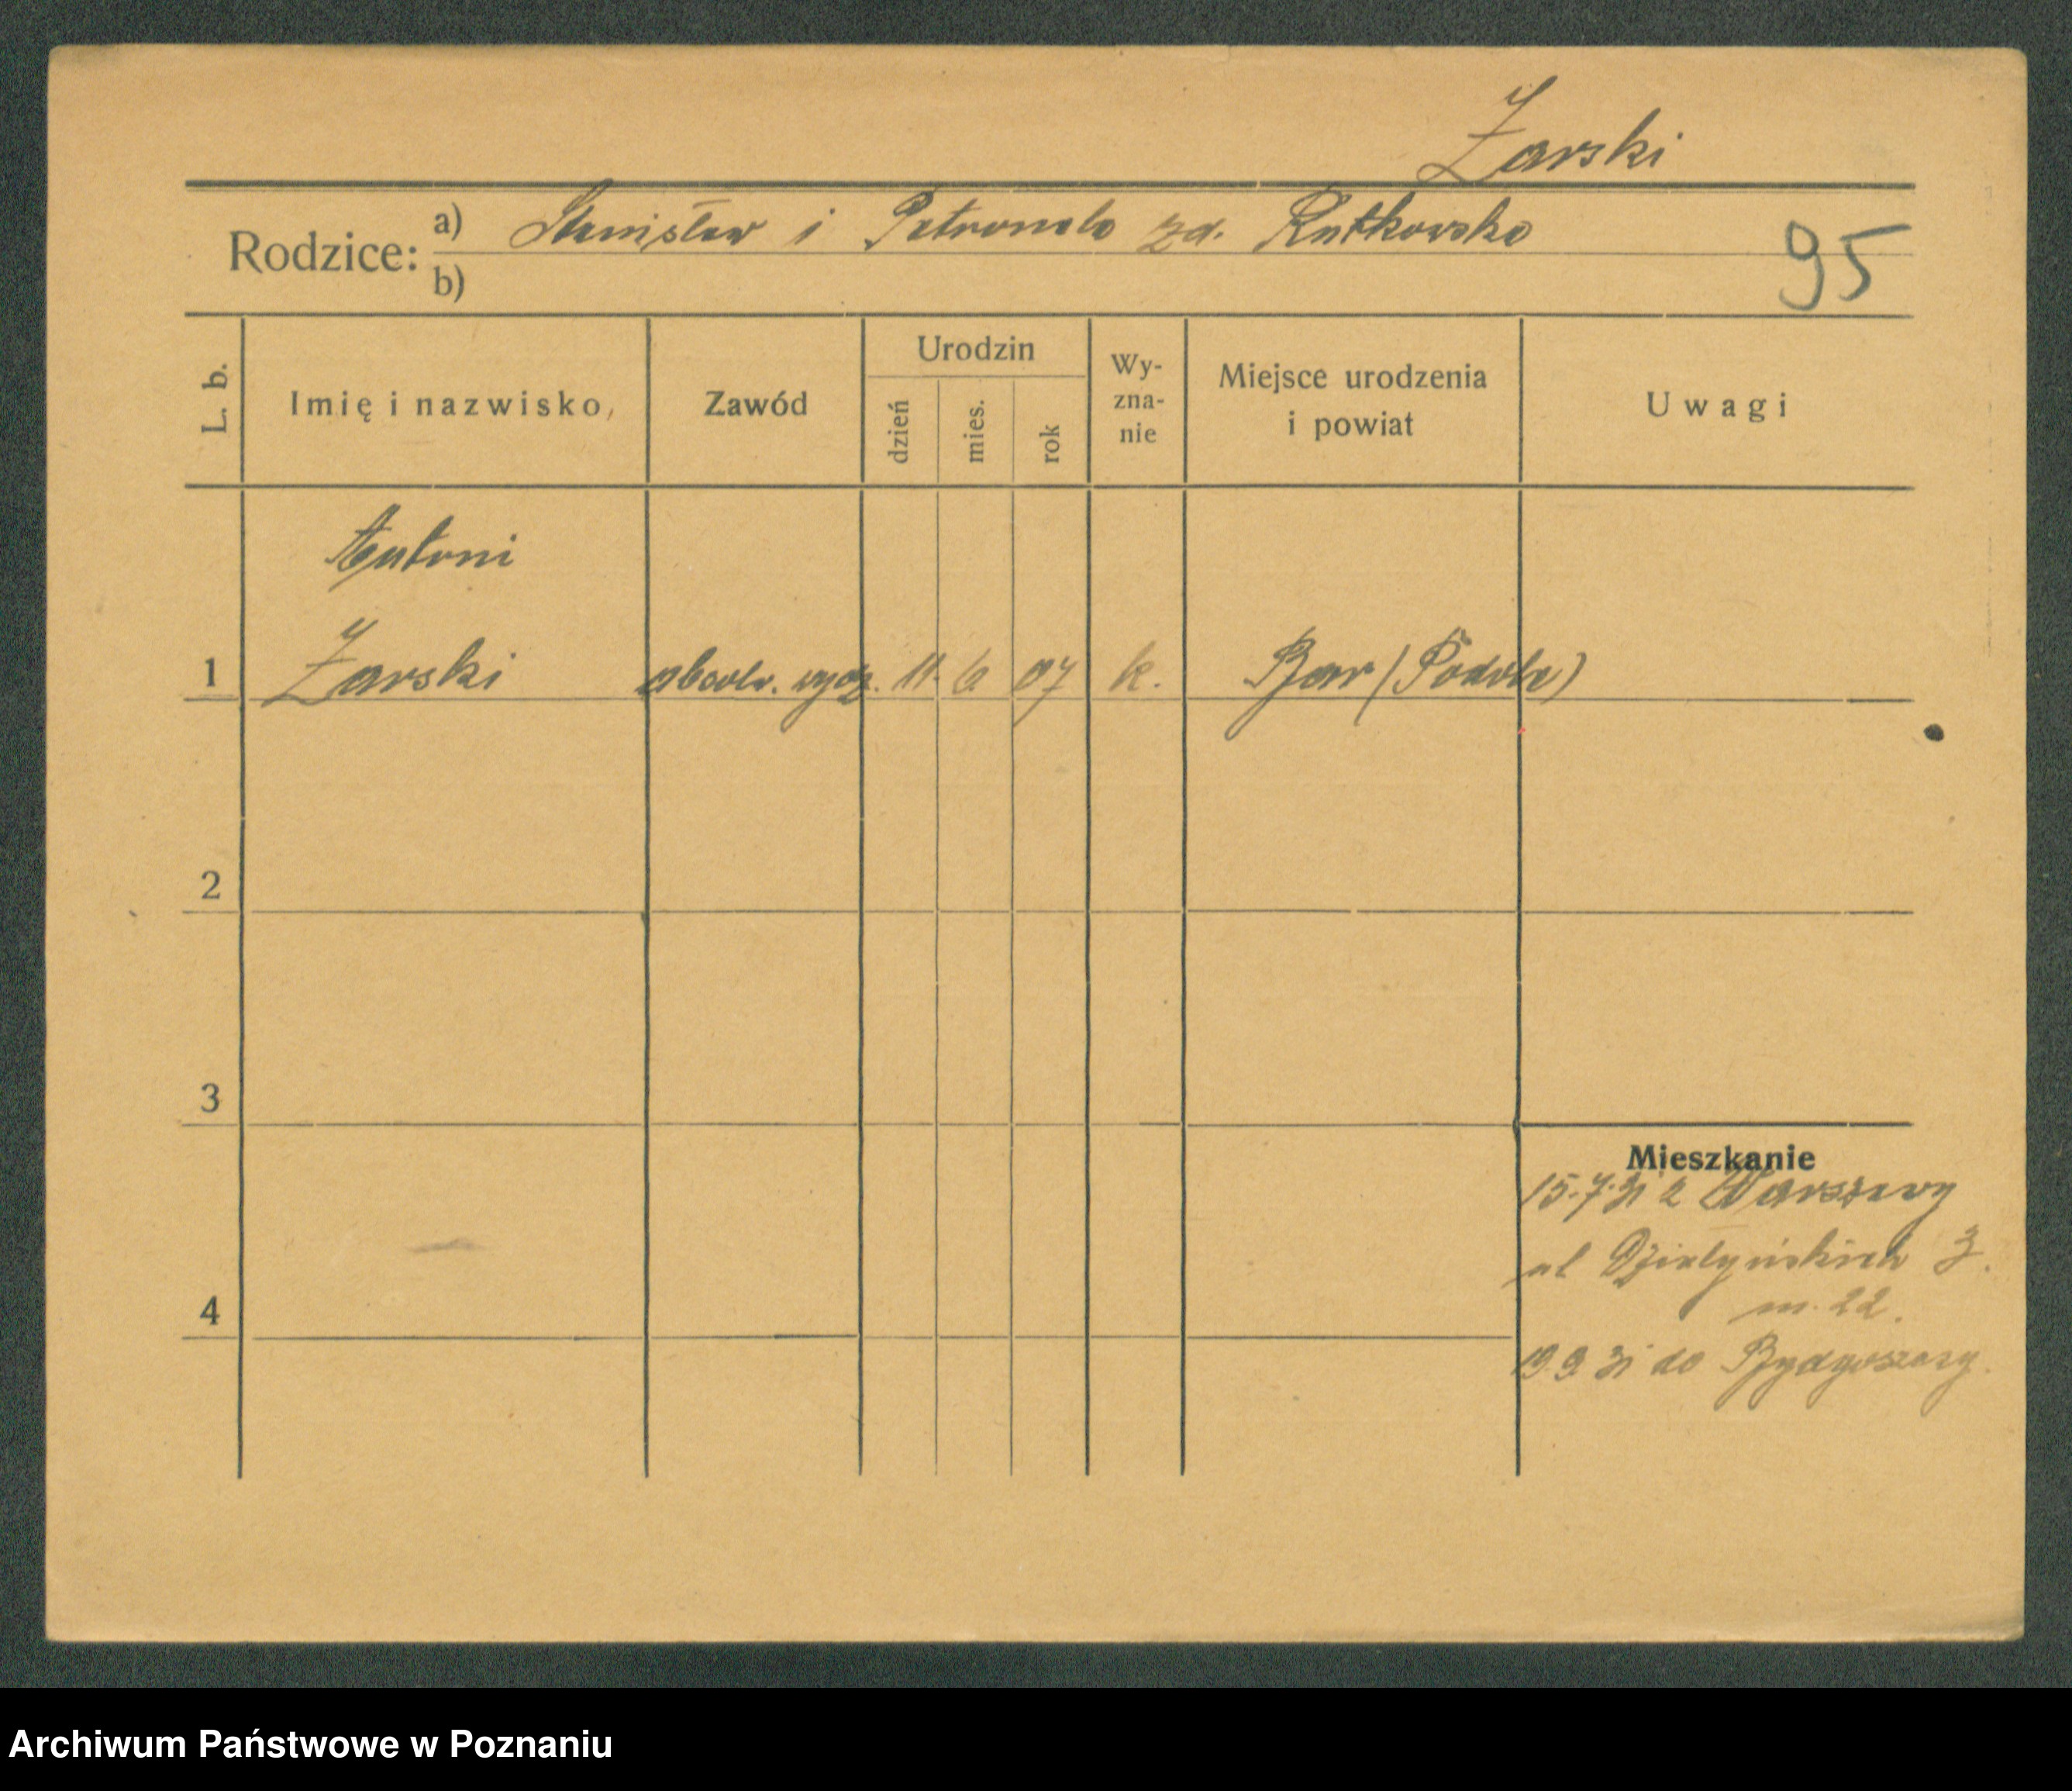 Żarski
Rodzice: a) Stanisław i Petronela zd. Rutkowska
b)
95
L. b. Imię i nazwisko, Zawód Urodzin dzień mies. rok Wy-zna-nie Miejsce urodzenia i powiat Uwagi
Antoni
1 Żarski absolw. wydz. 11. 6 07 k. Bar (Podole)
2
3
Mieszkanie
15.7.31 z Warszawy
ul Działyńskich 3.
m. 22.
4
19.9 31 do Bydgoszczy.
Archiwum Państwowe w Poznaniu